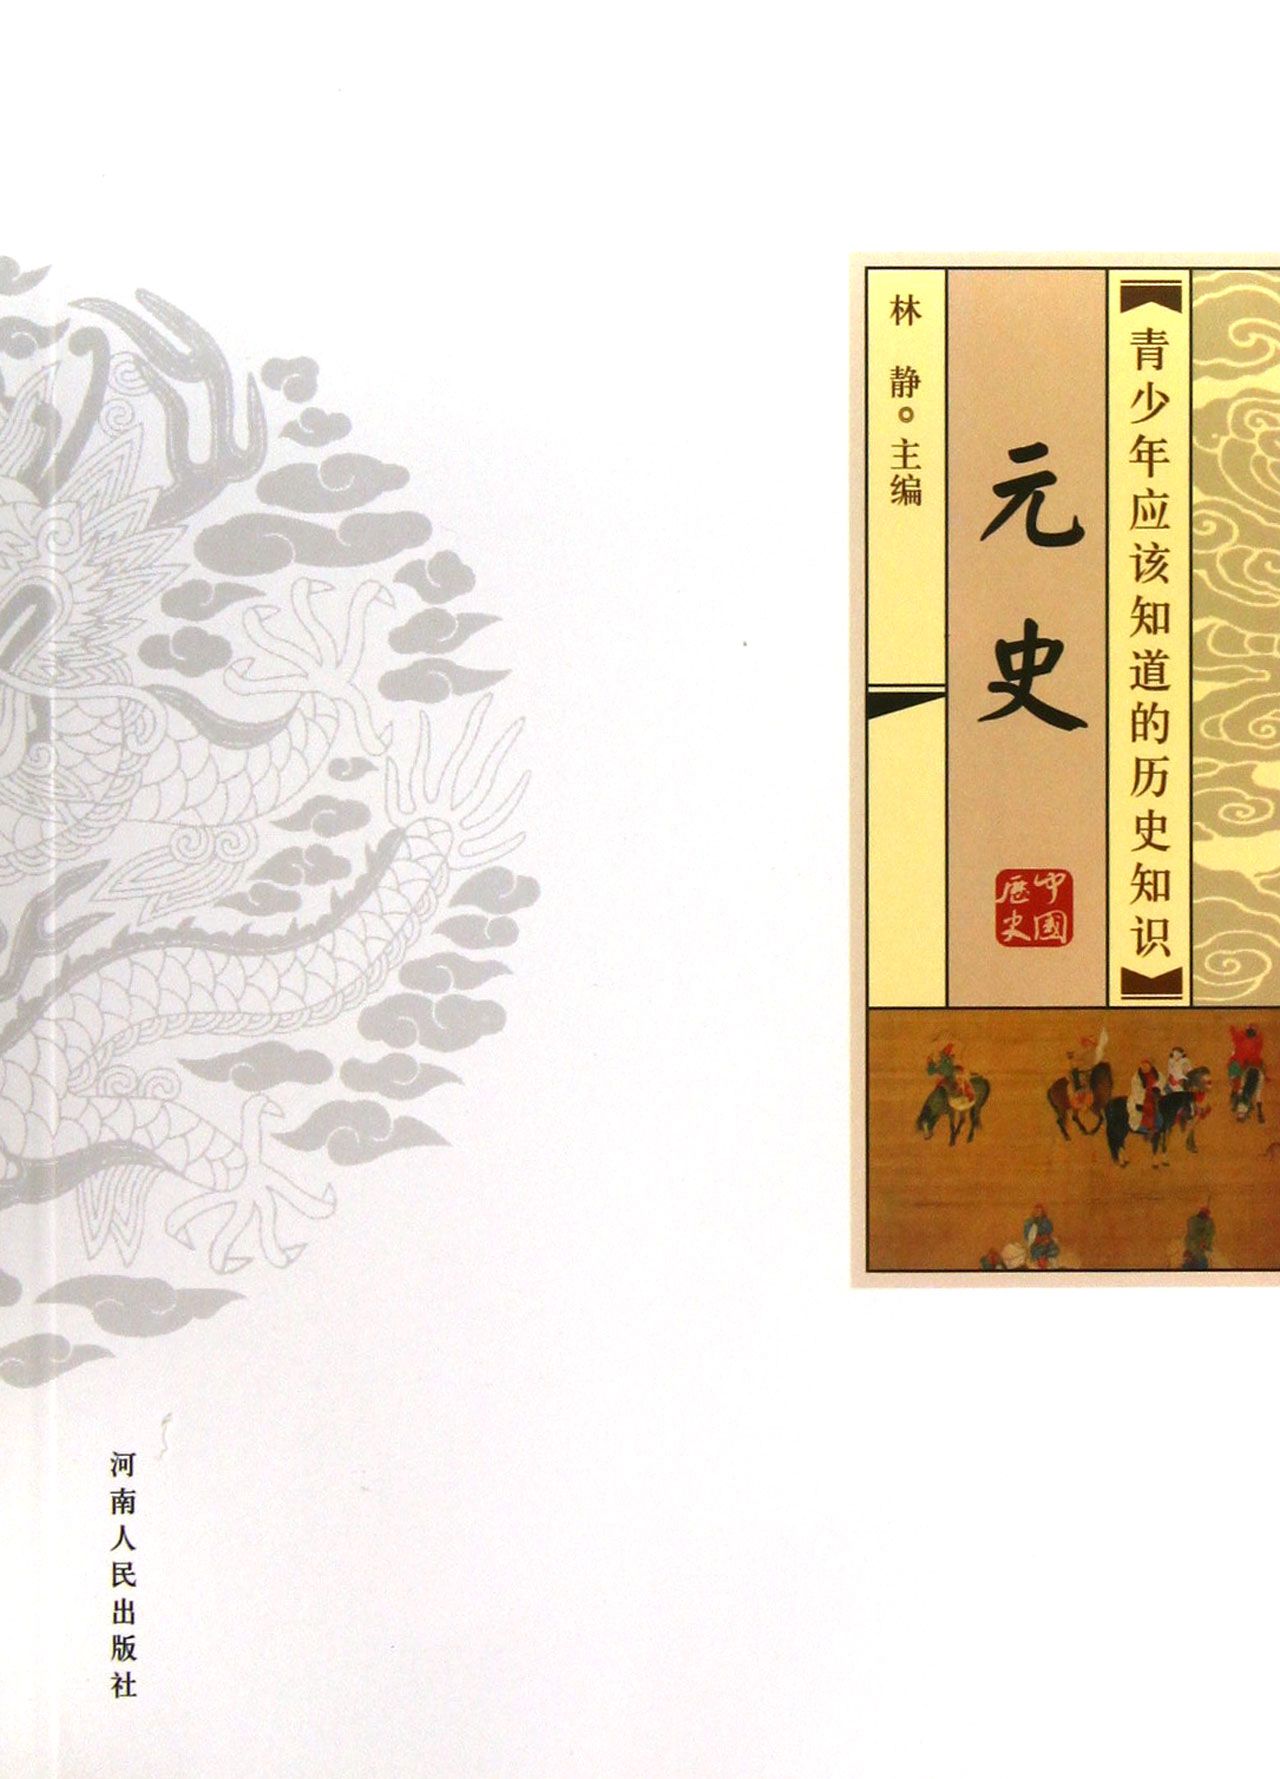 青少年应该知道的历史知识
元史
中國
歷史
林 静。主编
河南人民出版社